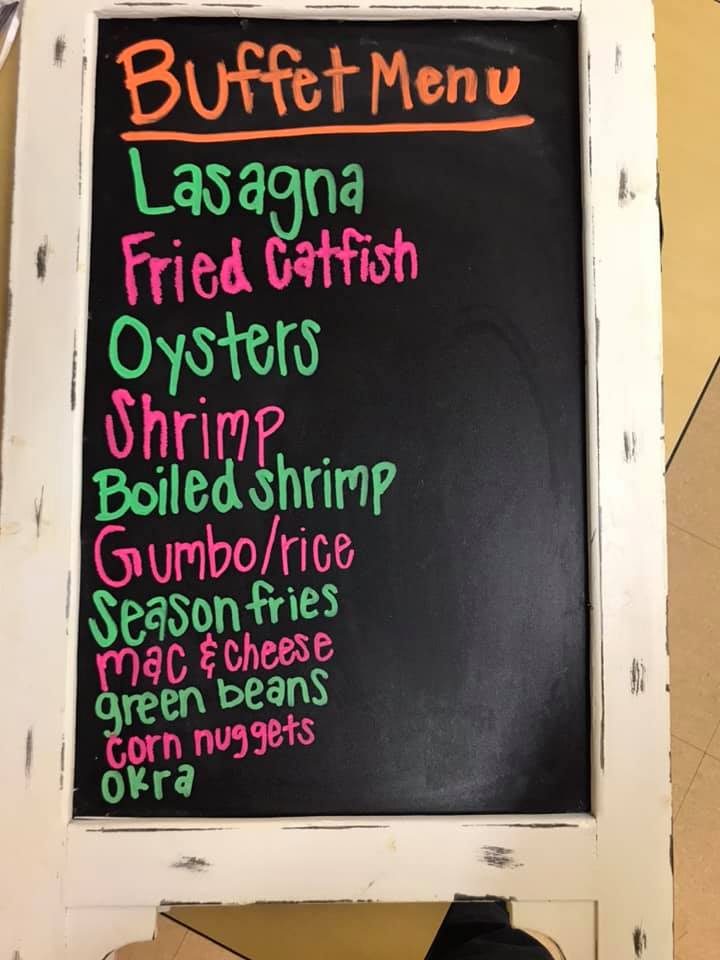 Buffet Menu
Lasagna
Fried Catfish
Oysters
Shrimp
Boiled shrimp
Gumbo/rice
Season fries
mac & cheese
green beans
corn nuggets
okra